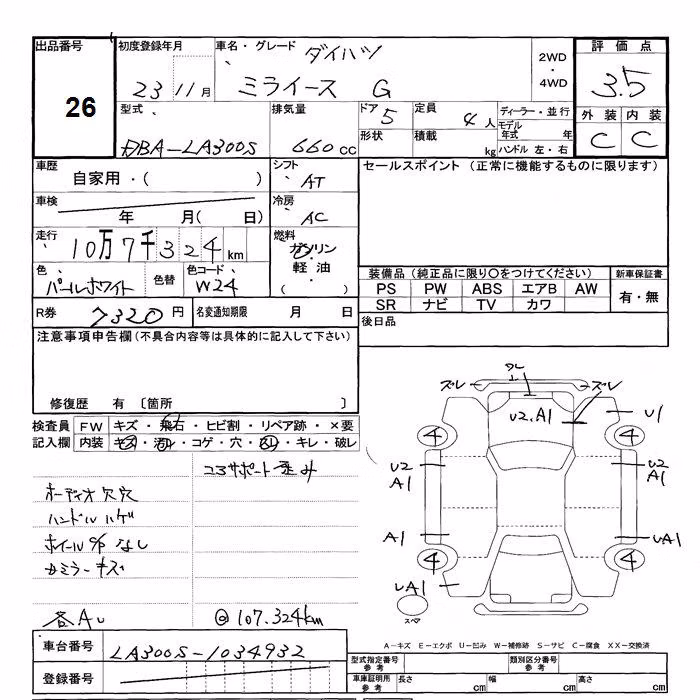 出品番号
26
初度登録年月
23 11月
車名・グレード ダイハツ
ミライース G
2WD
・
4WD
評価点
3.5
外装 内装
C C
型式
DBA-LA300S
排気量
660cc
ドア 5
形状
定員 4人
積載 kg
ディーラー・並行
モデル年式 年
ハンドル 左・右
車歴
自家用・( )
シフト
AT
車検
年 月( 日)
冷房
AC
走行
10万7千324km
燃料
ガソリン
軽油・
( )
色
パールホワイト
色替
色コード
W24
R券 7320円
名変通知期限 月 日
セールスポイント (正常に機能するものに限ります)
装備品(純正品に限り○をつけてください)
PS PW ABS エアB AW
SR ナビ TV カワ
新車保証書
有・無
後日品
注意事項申告欄(不具合内容等は具体的に記入して下さい)
修復歴 有 〔箇所 〕
検査員記入欄
FW キズ・飛石・ヒビ割・リペア跡・×要
内装 キズ・汚れ・コゲ・穴・スレ・キレ・破レ
コアサポート歪み
オーディオ欠穴
ハンドルハゲ
ホイールO/Pなし
カミラーキズ
各AU
@107.324km
ズレ ズレ
U2.A1
U1
4 4
U2 U2
A1 A1
A1 UA1
4 4
UA1
スペア
A－キズ E－エクボ U－凹み W－補修跡 S－サビ C－腐食 XX－交換済
車台番号 LA300S-1034932
登録番号
型式指定番号 参考
類別区分番号 参考
車庫証明用 参考
長さ cm
幅 cm
高さ cm